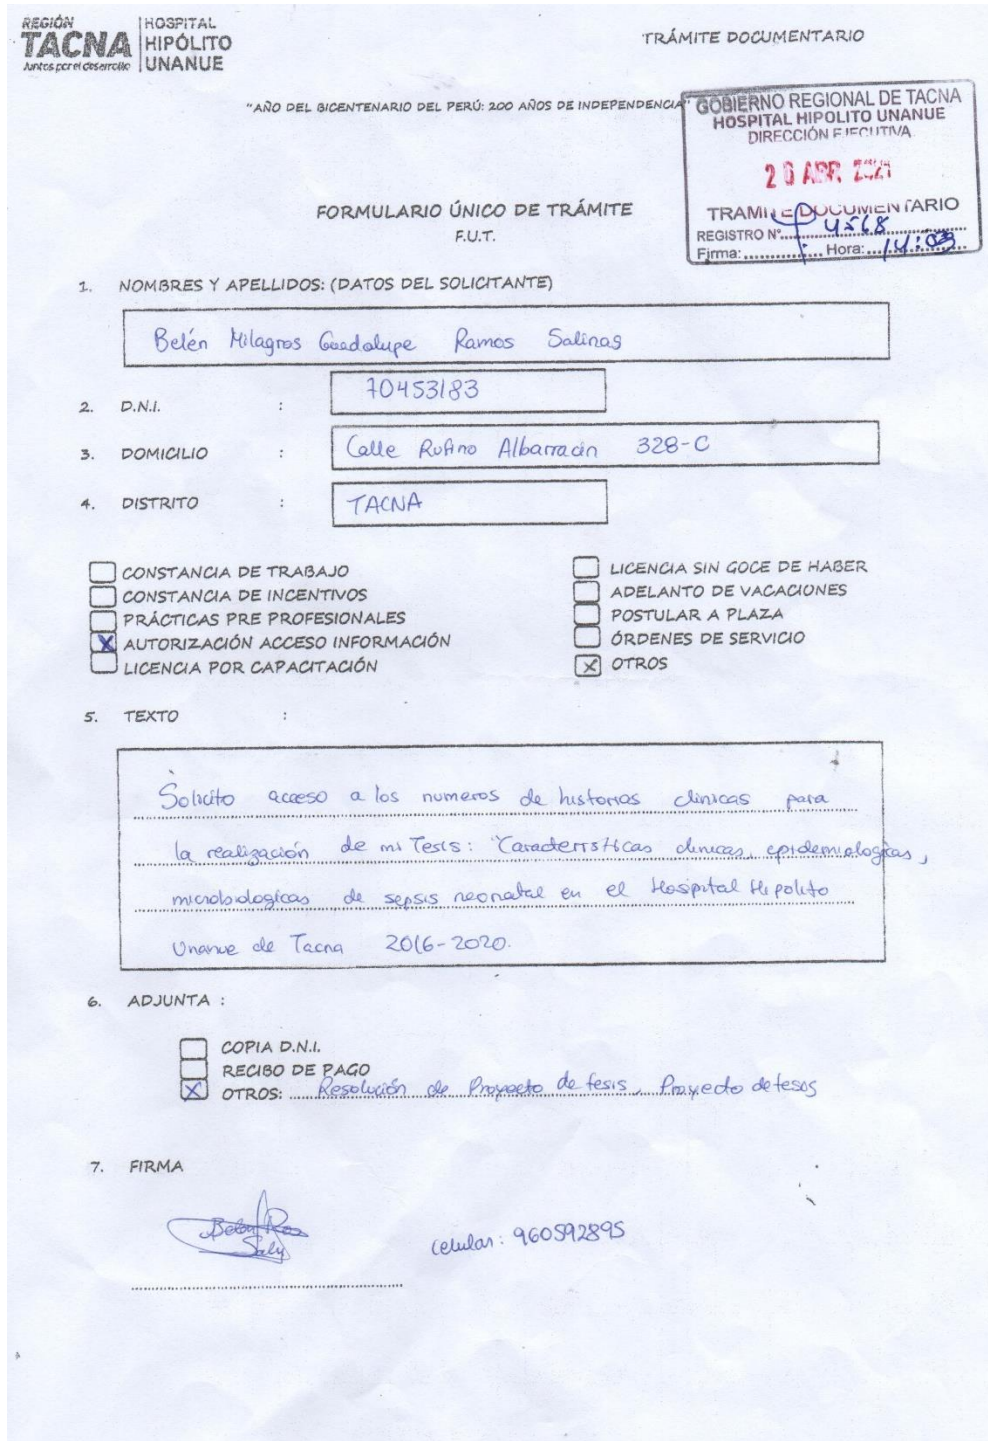 REGIÓN
TACNA
Juntos por el desarrollo
HOSPITAL
HIPÓLITO
UNANUE
TRÁMITE DOCUMENTARIO
"AÑO DEL BICENTENARIO DEL PERÚ: 200 AÑOS DE INDEPENDENCIA"
GOBIERNO REGIONAL DE TACNA
HOSPITAL HIPOLITO UNANUE
DIRECCIÓN EJECUTIVA
ABR. 2021
TRAMITE DOCUMENTARIO
REGISTRO N° 4568
Firma: Hora: 14:03
FORMULARIO ÚNICO DE TRÁMITE
F.U.T.
1. NOMBRES Y APELLIDOS: (DATOS DEL SOLICITANTE)
Belén Milagros Guadalupe Ramos Salinas
2. D.N.I. : 70453183
3. DOMICILIO : Calle Rufino Albarracin 328-C
4. DISTRITO : TACNA
CONSTANCIA DE TRABAJO
CONSTANCIA DE INCENTIVOS
PRÁCTICAS PRE PROFESIONALES
X AUTORIZACIÓN ACCESO INFORMACIÓN
LICENCIA POR CAPACITACIÓN
LICENCIA SIN GOCE DE HABER
ADELANTO DE VACACIONES
POSTULAR A PLAZA
ÓRDENES DE SERVICIO
X OTROS
5. TEXTO :
Solicito acceso a los numeros de historias clinicas para
la realización de mi Tesis: "Caracteristicas clinicas, epidemiologicas,
microbiologicas de sepsis neonatal en el Hosipital Hipolito
Unanue de Tacna 2016-2020.
6. ADJUNTA :
COPIA D.N.I.
RECIBO DE PAGO
X OTROS: Resolución de Proyecto de tesis, Proyecto de tesis
7. FIRMA
celular: 960592895